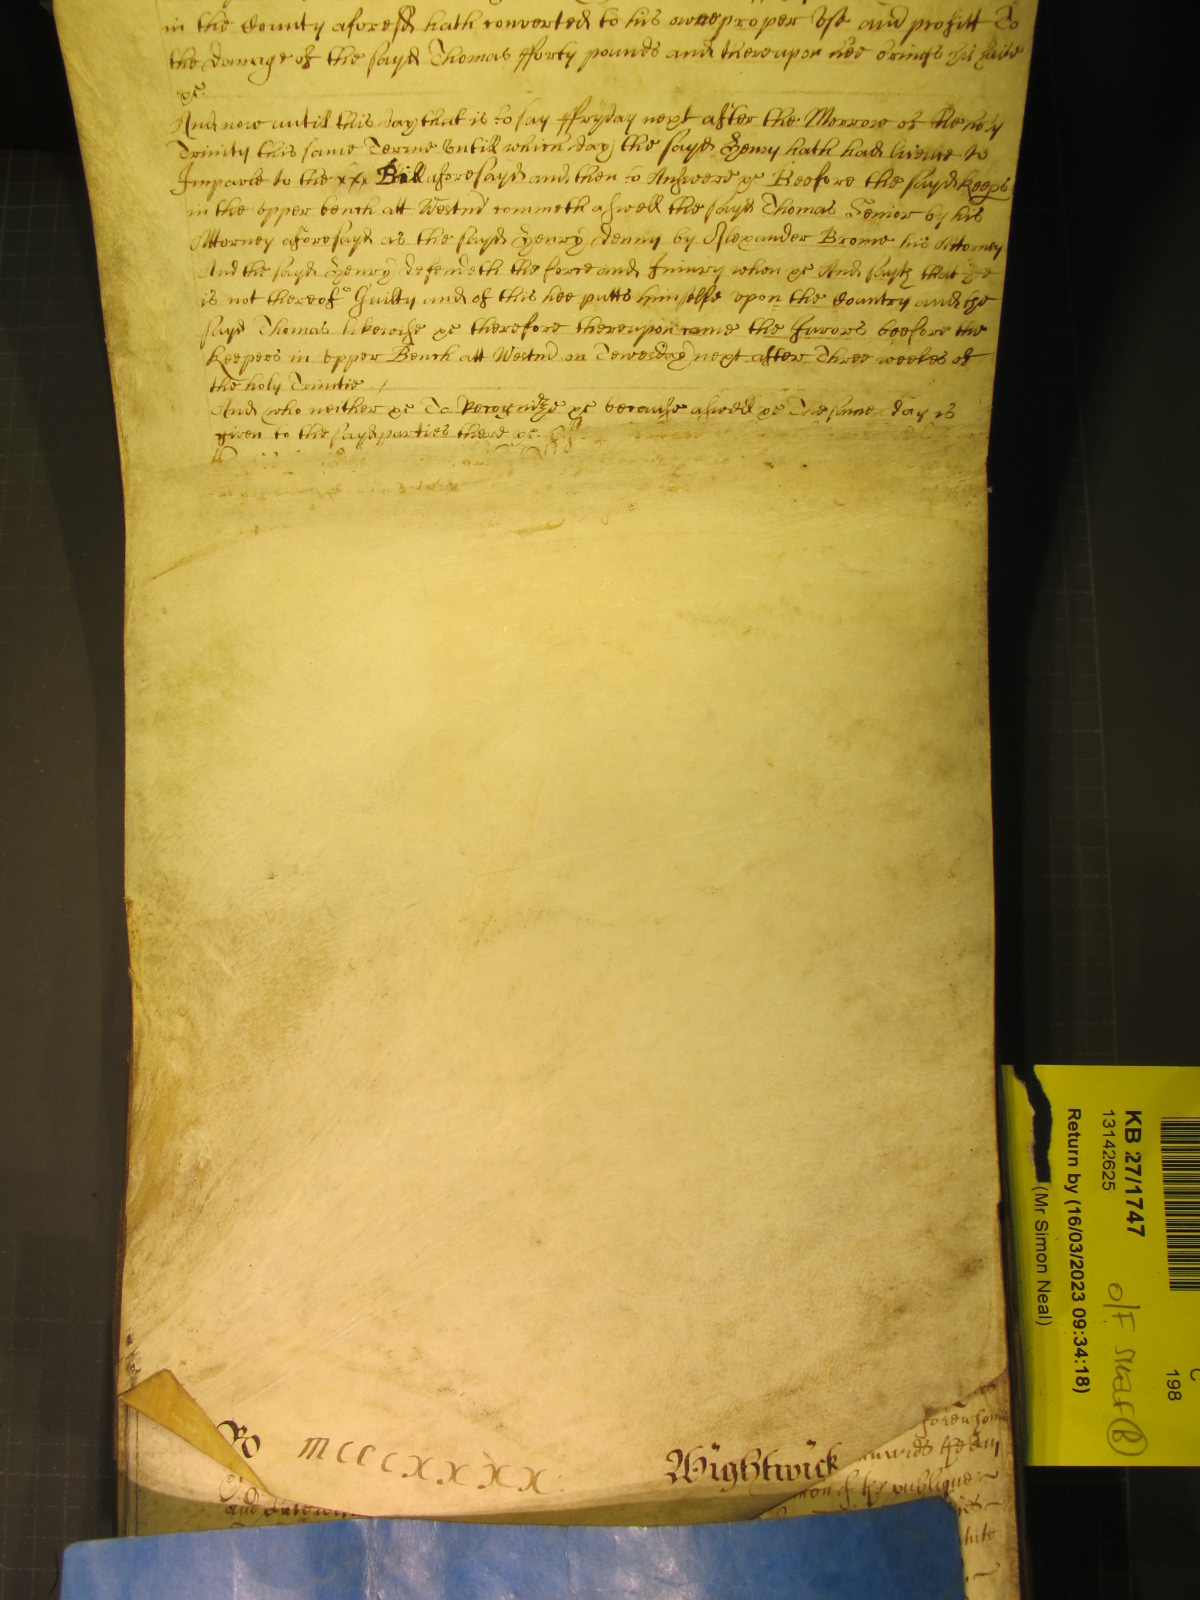 in the County aforesd hath converted to his owne proper Use and profitt To
the damage of the sayd Thomas fforty pounds and thereupon hee brings his suite
&c
And now untill this day that is to say ffryday next after the Morrow of the holy
Trinity this same Terme Untill which day the sayd Henry hath had licence to
Imparle to the xxx Bill aforesayd and then to Answere &c Beefore the sayd Keeps
in the upper bench att Westmr commeth aswell the sayd Thomas Senior by his
Attorney aforesayd as the sayd Henry denny by Alexander Brome his Attorney
And the sayd Henry defendeth the force and Injury when &c And sayth that hee
is not thereof Guilty and of this hee putts himselfe upon the Country and the
sayd Thomas likewise &c therefore thereupon came the Jurors beefore the
Keepers in upper Bench att Westmr on Tewesday next after Three weekes of
the holy Trinitie
And who neither &c To Recognize &c because aswell &c The same day is
given to the sayd parties there &c
Ro MCCCCXXXX
Wightwick
of the publique
and
white
KB 27/1747
13142625
Return by (16/03/2023 09:34:18)
(Mr Simon Neal)
O/F
198
C